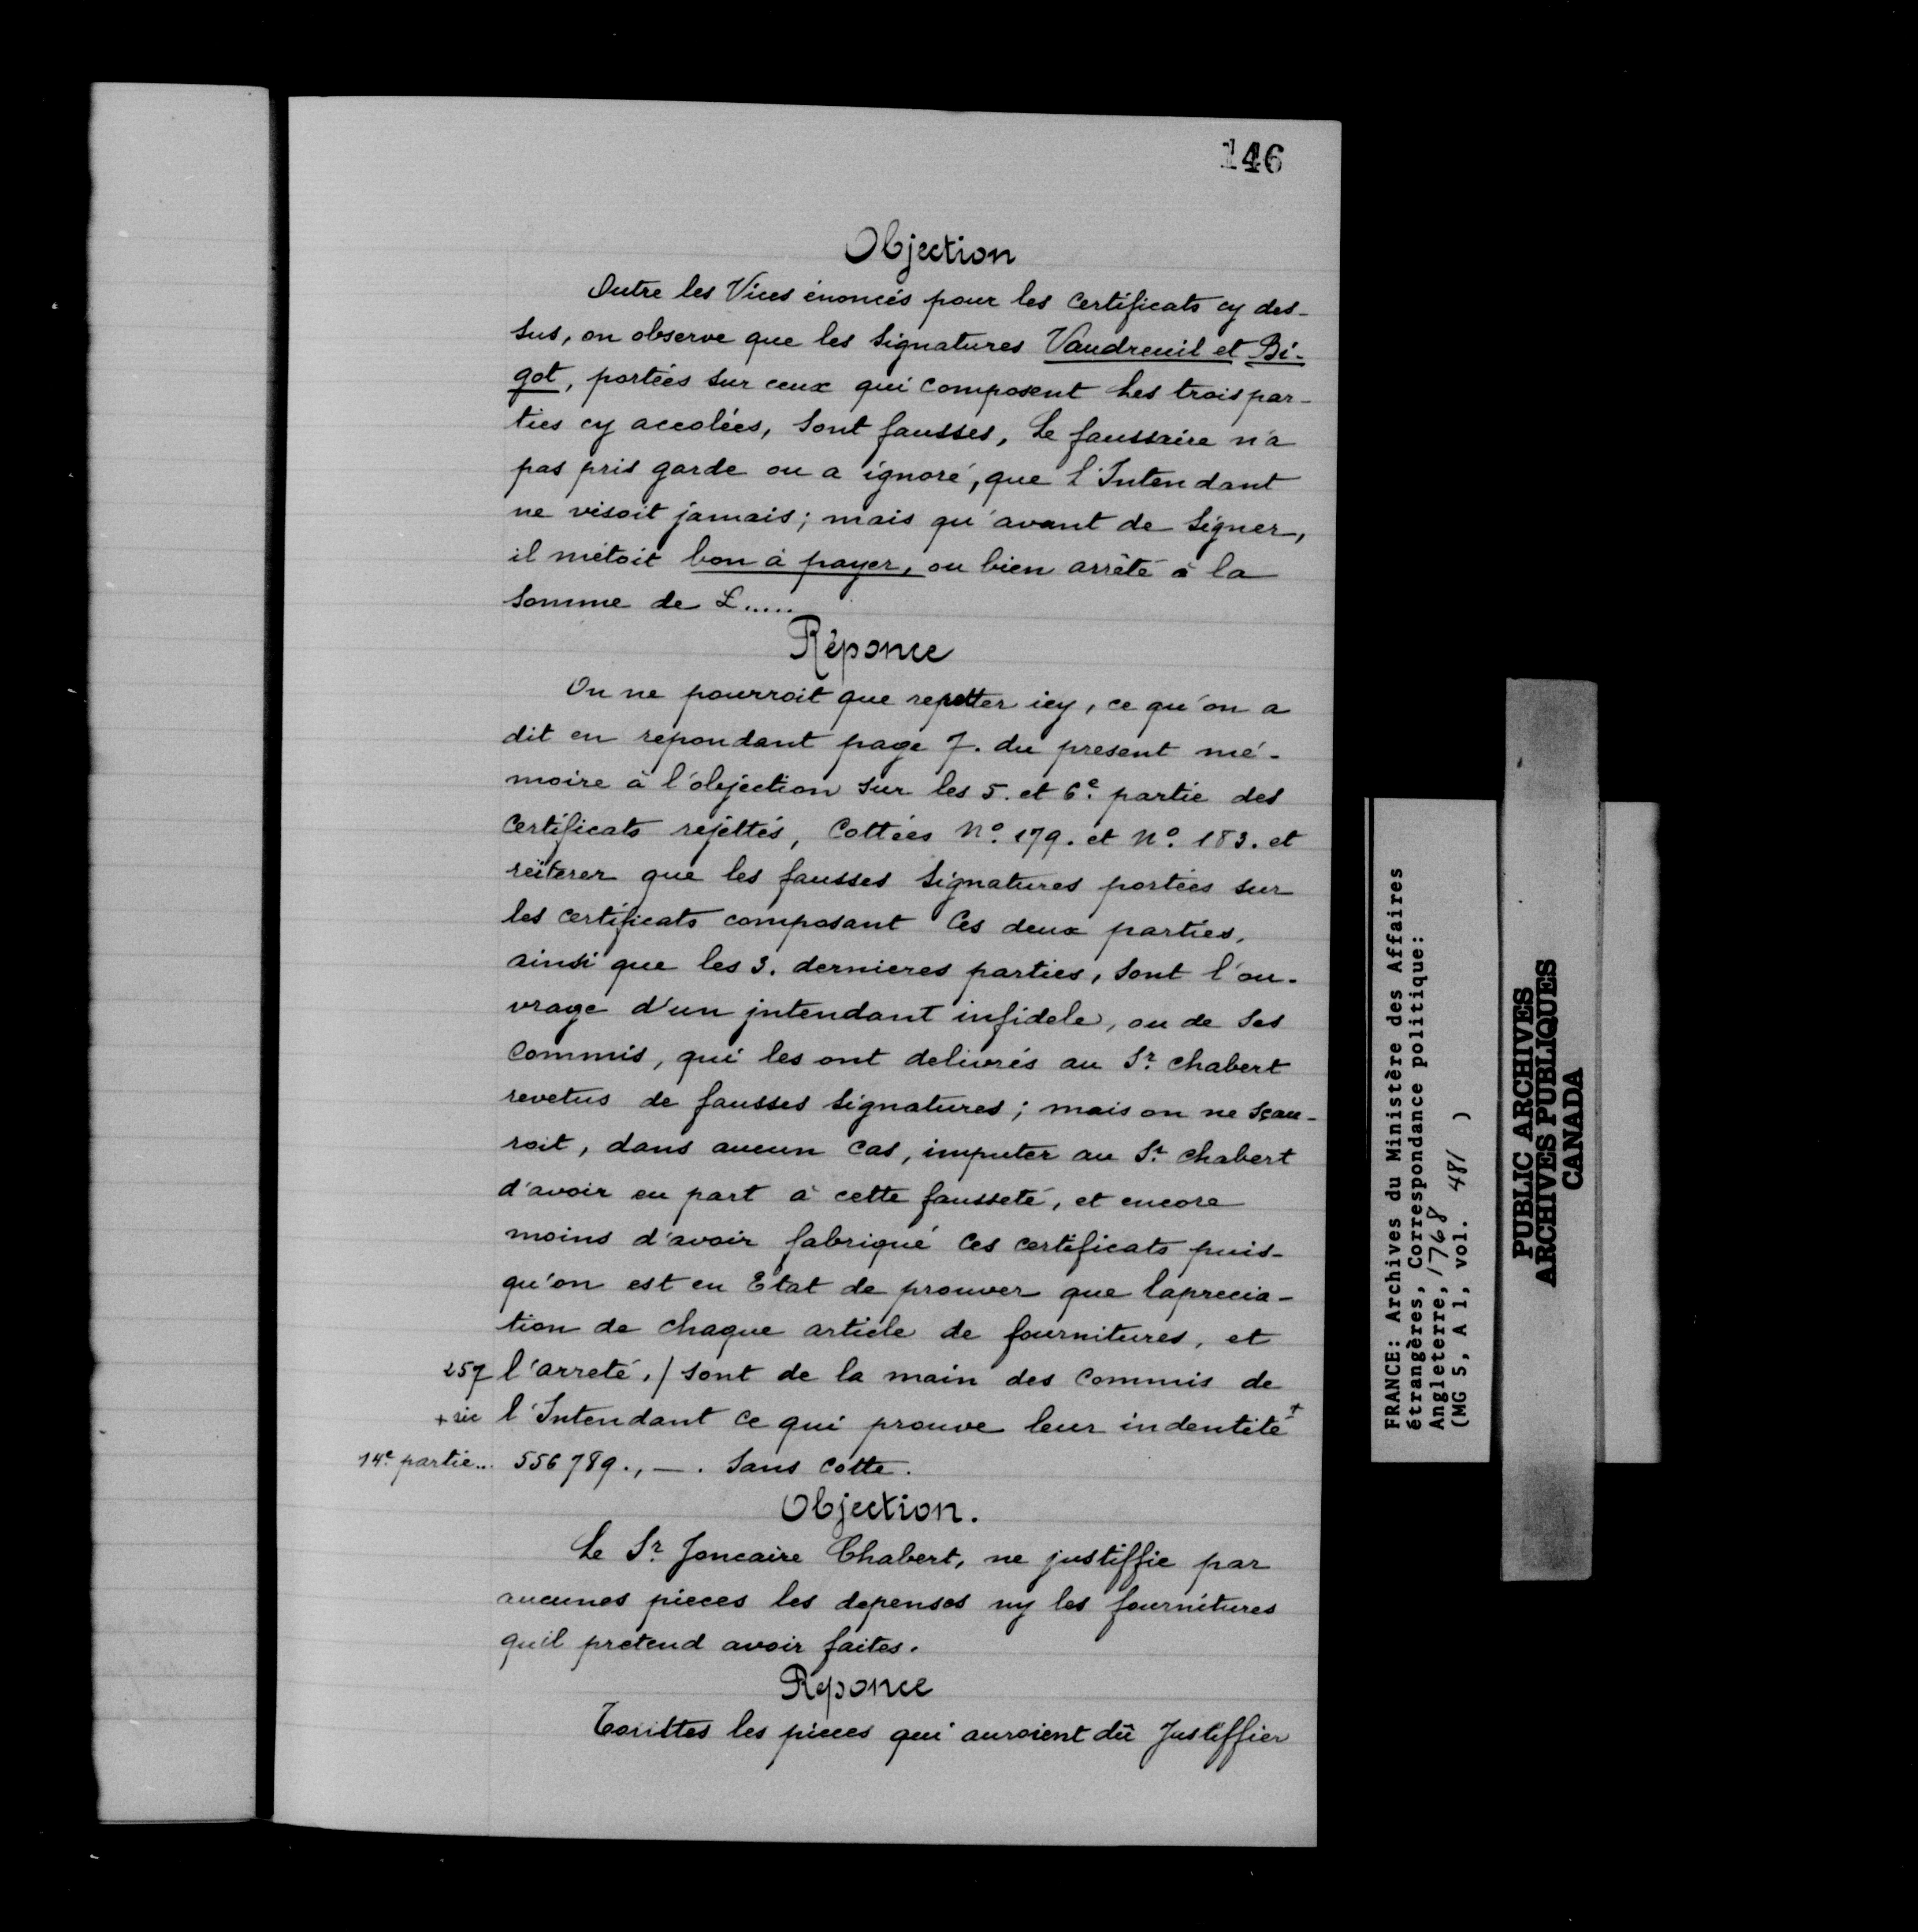 146
Objection
Outre les Vices énoncés pour les certificats cy des-
sus, on observe que les signatures Vaudreuil et Bi-
got, portées sur ceux qui composent les trois par-
ties cy accolées, sont fausses, Le faussaire n'a
pas pris garde ou a ignoré, que l'Intendant
ne visoit jamais; mais qu'avant de signer,
il métoit bon à payer, ou bien arrêté à la
somme de £.....
Réponce
On ne pourroit que repetter icy, ce qu'on a
dit en repondant page 7. du present mé-
moire à l'objection sur les 5. et 6e. partie des
certificats rejettés, Cottées No. 179. et No. 183. et
reïterer que les fausses signatures portées sur
les certificats composant Ces deux parties,
ainsi que les 3. dernieres parties, sont l'ou-
vrage d'un intendant infidele, ou de ses
Commis, qui les ont delivrés au Sr. Chabert
revetus de fausses signatures; mais on ne sçau-
roit, dans aucun cas, imputer au Sr. Chabert
d'avoir eu part à cette fausseté, et encore
moins d'avoir fabriqué Ces certificats puis-
qu'on est en Etat de prouver que laprecia-
tion de chaque article de fournitures, et
257 l'arreté, / sont de la main des Commis de
+ sic l'Intendant ce qui prouve leur indentité +
14e. partie.. 556789., —. Sans cotte.
Objection.
Le Sr. Joncaire Chabert, ne justiffie par
aucunes pieces les depenses ny les fournitures
quil pretend avoir faites.
Réponce
Touttes les pieces qui auroient dû Justiffier
FRANCE: Archives du Ministère des Affaires
étrangères, Correspondance politique:
Angleterre, 1768
(MG 5, A 1, vol. 481 )
PUBLIC ARCHIVES
ARCHIVES PUBLIQUES
CANADA